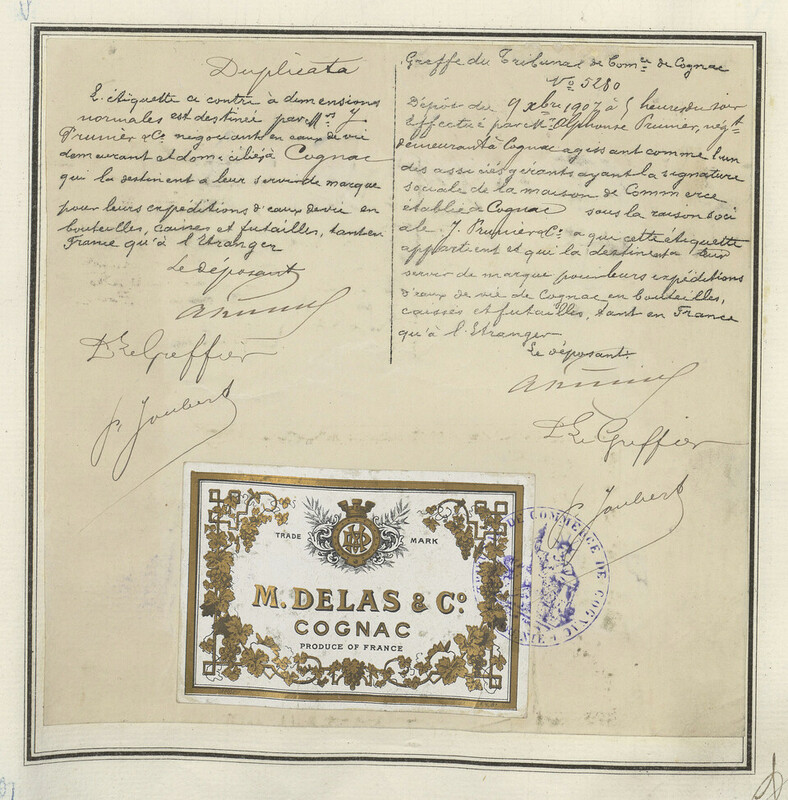 Duplicata
L'étiquette ci contre à dimensions
normales est destinée par MMrs J
Prunier & Co négociant en eaux de vie
demeurant et domiciliés à Cognac
qui la destinent a leur servir de marque
pour leurs expéditions d'eaux de vie en
bouteilles, caisses et futailles, tant en
France qu'à l'Etranger
Le déposant
APrunier
Le Greffier
p. Joubert
Greffe du Tribunal de Comce de Cognac
No 5280
Dépôt du 9 Xbre 1907 à 5 heures du soir
Effectué par Mr Alphonse Prunier, négt
demeurant à Cognac agissant comme l'un
des associés gérants ayant la signature
sociale de la maison de Commerce
établie à Cognac sous la raison soci
ale J. Prunier & Co a qui cette étiquette
appartient et qui la destinent a leur
servir de marque pour leurs expéditions
d'eaux de vie de Cognac en bouteilles,
caisses et futailles, tant en France
qu'à l'Etranger
Le déposant
APrunier
Le Greffier
p. Joubert
TRADE MARK
M. DELAS & Co
COGNAC
PRODUCE OF FRANCE
DE COMMERCE DE COGNAC